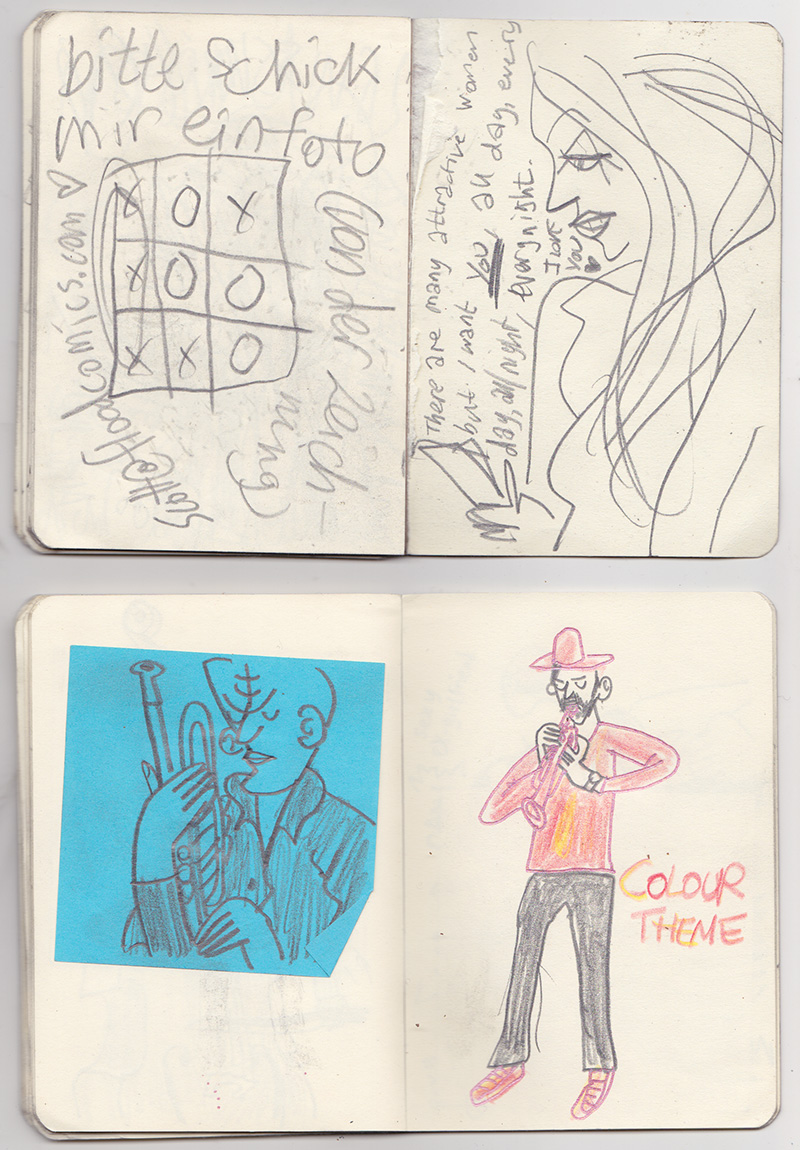 bitte schick
mir ein foto
(von der Zeich-
nung)
Scott@Hoodcomics.com ♡
X O X
X O O
X X O
There are many attractive women
but i want you, all day, every
day, all night, every night.
I LOVE
YOU
COLOUR
THEME